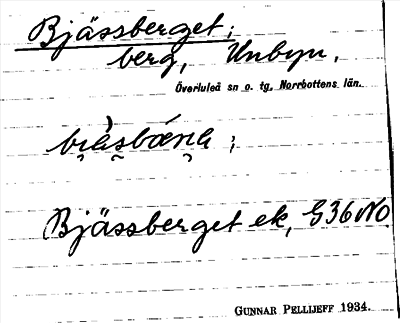 Bjässberget;
berg, Unbyn.
Överluleå sn o. tg, Norrbottens län.
Bjässberget ek, G36NO
GUNNAR PELLIJEFF 1934.